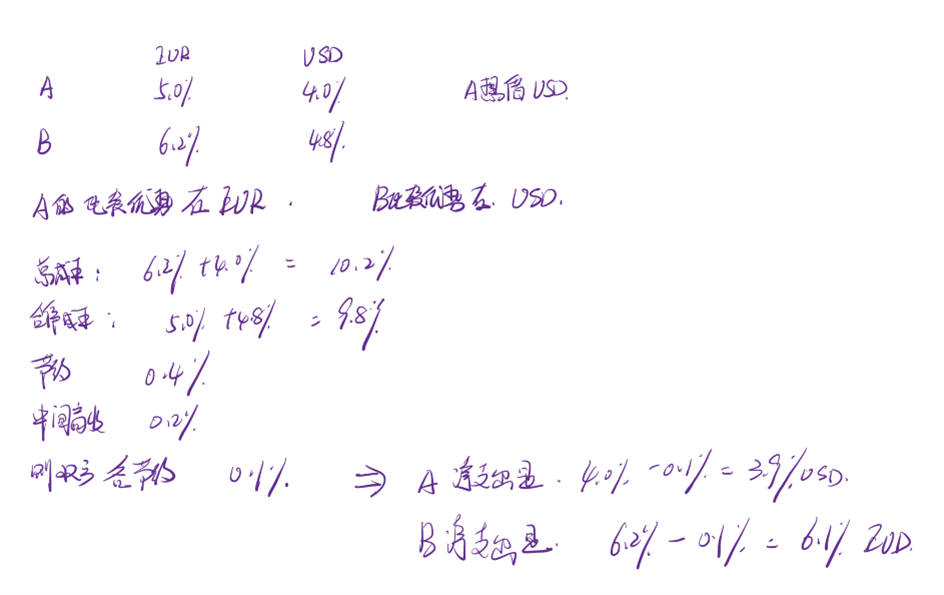 EUR USD
A 5.0% 4.0% A想借USD.
B 6.2% 4.8%.
A的比较优势在EUR. B比较优势在. USD.
总成本: 6.2% + 4.0% = 10.2%
合作成本: 5.0% + 4.8% = 9.8%
节约 0.4%.
中间商收 0.2%.
则双方各节约 0.1%. ⇒ A 净支出是. 4.0% - 0.1% = 3.9% USD.
B 净支出是. 6.2% - 0.1% = 6.1% EUD.